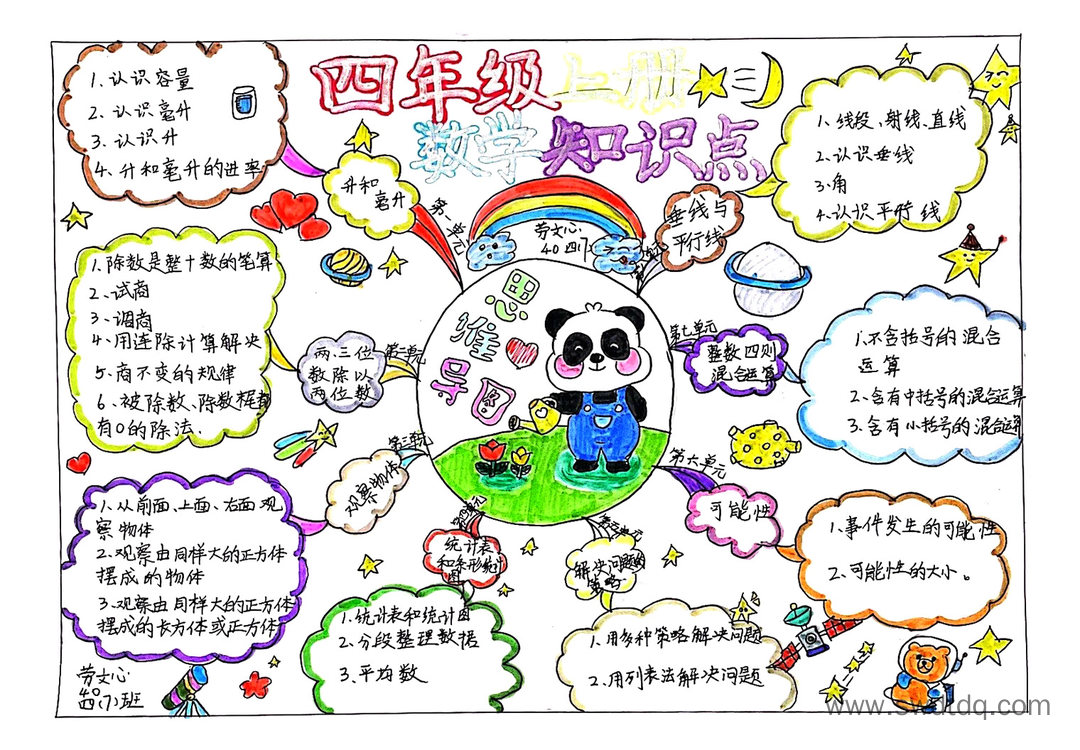 四年级上册
数学知识点
1.认识容量
2.认识毫升
3.认识升
4.升和毫升的进率
升和
毫升
第一单元
劳文心
垂线与
平行线
1.线段、射线、直线
2.认识垂线
3.角
4.认识平行线
1.除数是整十数的笔算
2.试商
3.调商
4.用连除计算解决
5.商不变的规律
6.被除数、除数
有0的除法.
两、三位
数除以
两位数
第二单元
思
维
导图
第七单元
整数四则
混合运算
1.不含括号的混合
运算
2.含有中括号的混合运算
3.含有小括号的混合运算
第三单元
观察物体
1.从前面、上面、右面观
察物体
2.观察由同样大的正方体
摆成的物体
3.观察由同样大的正方体
摆成的长方体或正方体
第四单元
统计表
和条形统计
图
1.统计表和统计图
2.分段整理数据
3.平均数
第五单元
解决问题的
策略
1.用多种策略解决问题
2.用列表法解决问题
第六单元
可能性
1.事件发生的可能性
2.可能性的大小。
劳文心
四(7)班
www.swdtdq.com